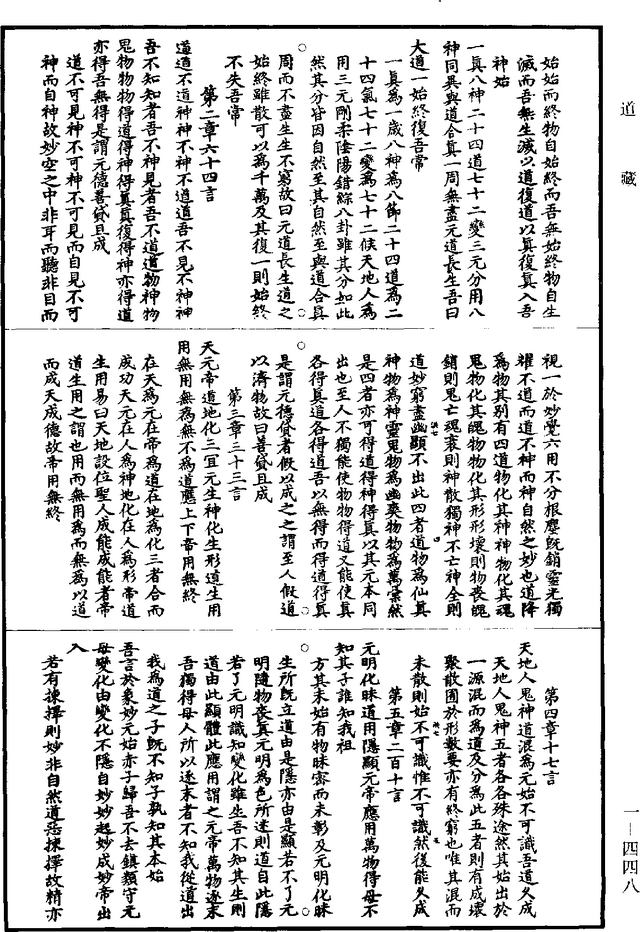 道藏
始始而終物自始終而吾無始終物自生
滅而吾無生滅以道復道以真復真入吾
神始
一真八神二十四道七十二變三元分用八
神同異與道合真一周無盡元道長生吾曰
大道一始終復吾常
一真爲一歲八神爲八節二十四道爲二
十四氣七十二變爲七十二候天地人爲
用三元剛柔陰陽錯綜八卦雖其分如此
然其分皆因自然至其自然至與道合真
周而不盡生生不窮故曰元道長生道之
始終雖散可以爲千萬及其復一則始終
不失吾常
第二章六十四言
道道不道神神不神不道道吾不見不神神
吾不知知者吾不神見者吾不道道物神物
鬼物物物得道得神得真真復得神亦得道
亦得吾無得是謂元德善貸且成
道不可見神不可神不可見而自見不可
神而自神故妙空之中非耳而聽非目而
視一於妙覺六用不分根塵旣銷靈光獨
耀不道而道不神而神自然之妙也道降
爲物其別有四道物化其神神物化其魂
鬼物化其魄物物化其形形壞則物喪魄
銷則鬼亡魂衰則神散獨神不亡神全則
道妙窮盡幽顯不出此四者道物爲仙真
神物爲神靈鬼物爲幽爽物物爲萬彙然
是四者亦可得道得神得真以其元本同
出也至人不獨能使物物得道又能使真
各得真道各得道吾以無得而得道得真
是謂元德貸者假以成之之謂至人假道
以濟物故曰善貸且成
第三章三十三言
天元帝道地化三宜元生神化生形道生用
用無用無爲無不爲道應上下帝用無終
在天爲元在帝爲道在地爲化三者合而
成功天元在人爲神地化在人爲形帝道
生用易曰天地設位聖人成能成能者帝
道生用之謂也用而無用爲而無爲以道
而成天成德故帝用無終
第四章十七言
天地人鬼神道混爲元始不可識吾道久成
天地人鬼神五者各各殊途然其始出於
一源混而爲道及分爲此五者則有成壞
聚散囿於形數要亦有終窮也唯其混而
未散則始不可識惟不可識然後能久成
第五章二百十言
元明化昧道用隱顯元帝應用萬物得母不
知其子誰知我祖
方其未始有物昧宻而未彰及元明化昧
生所旣立道由是隱亦由是顯若不了元
明隨物喪真元明爲色所迷則道自此隱
若了元明識知變化雖生吾不知其生則
道由此顯體此應用謂之元帝萬物逐末
吾獨得母人所以逐末者不知我從道出
我爲道之子旣不知子孰知其本始
吾言於象妙元始亦子歸吾不去鎮頮守元
母變化由變化不隱自妙妙起妙成妙帝出
入
若有揀擇則妙非自然道惡揀擇故精亦
一—四四八